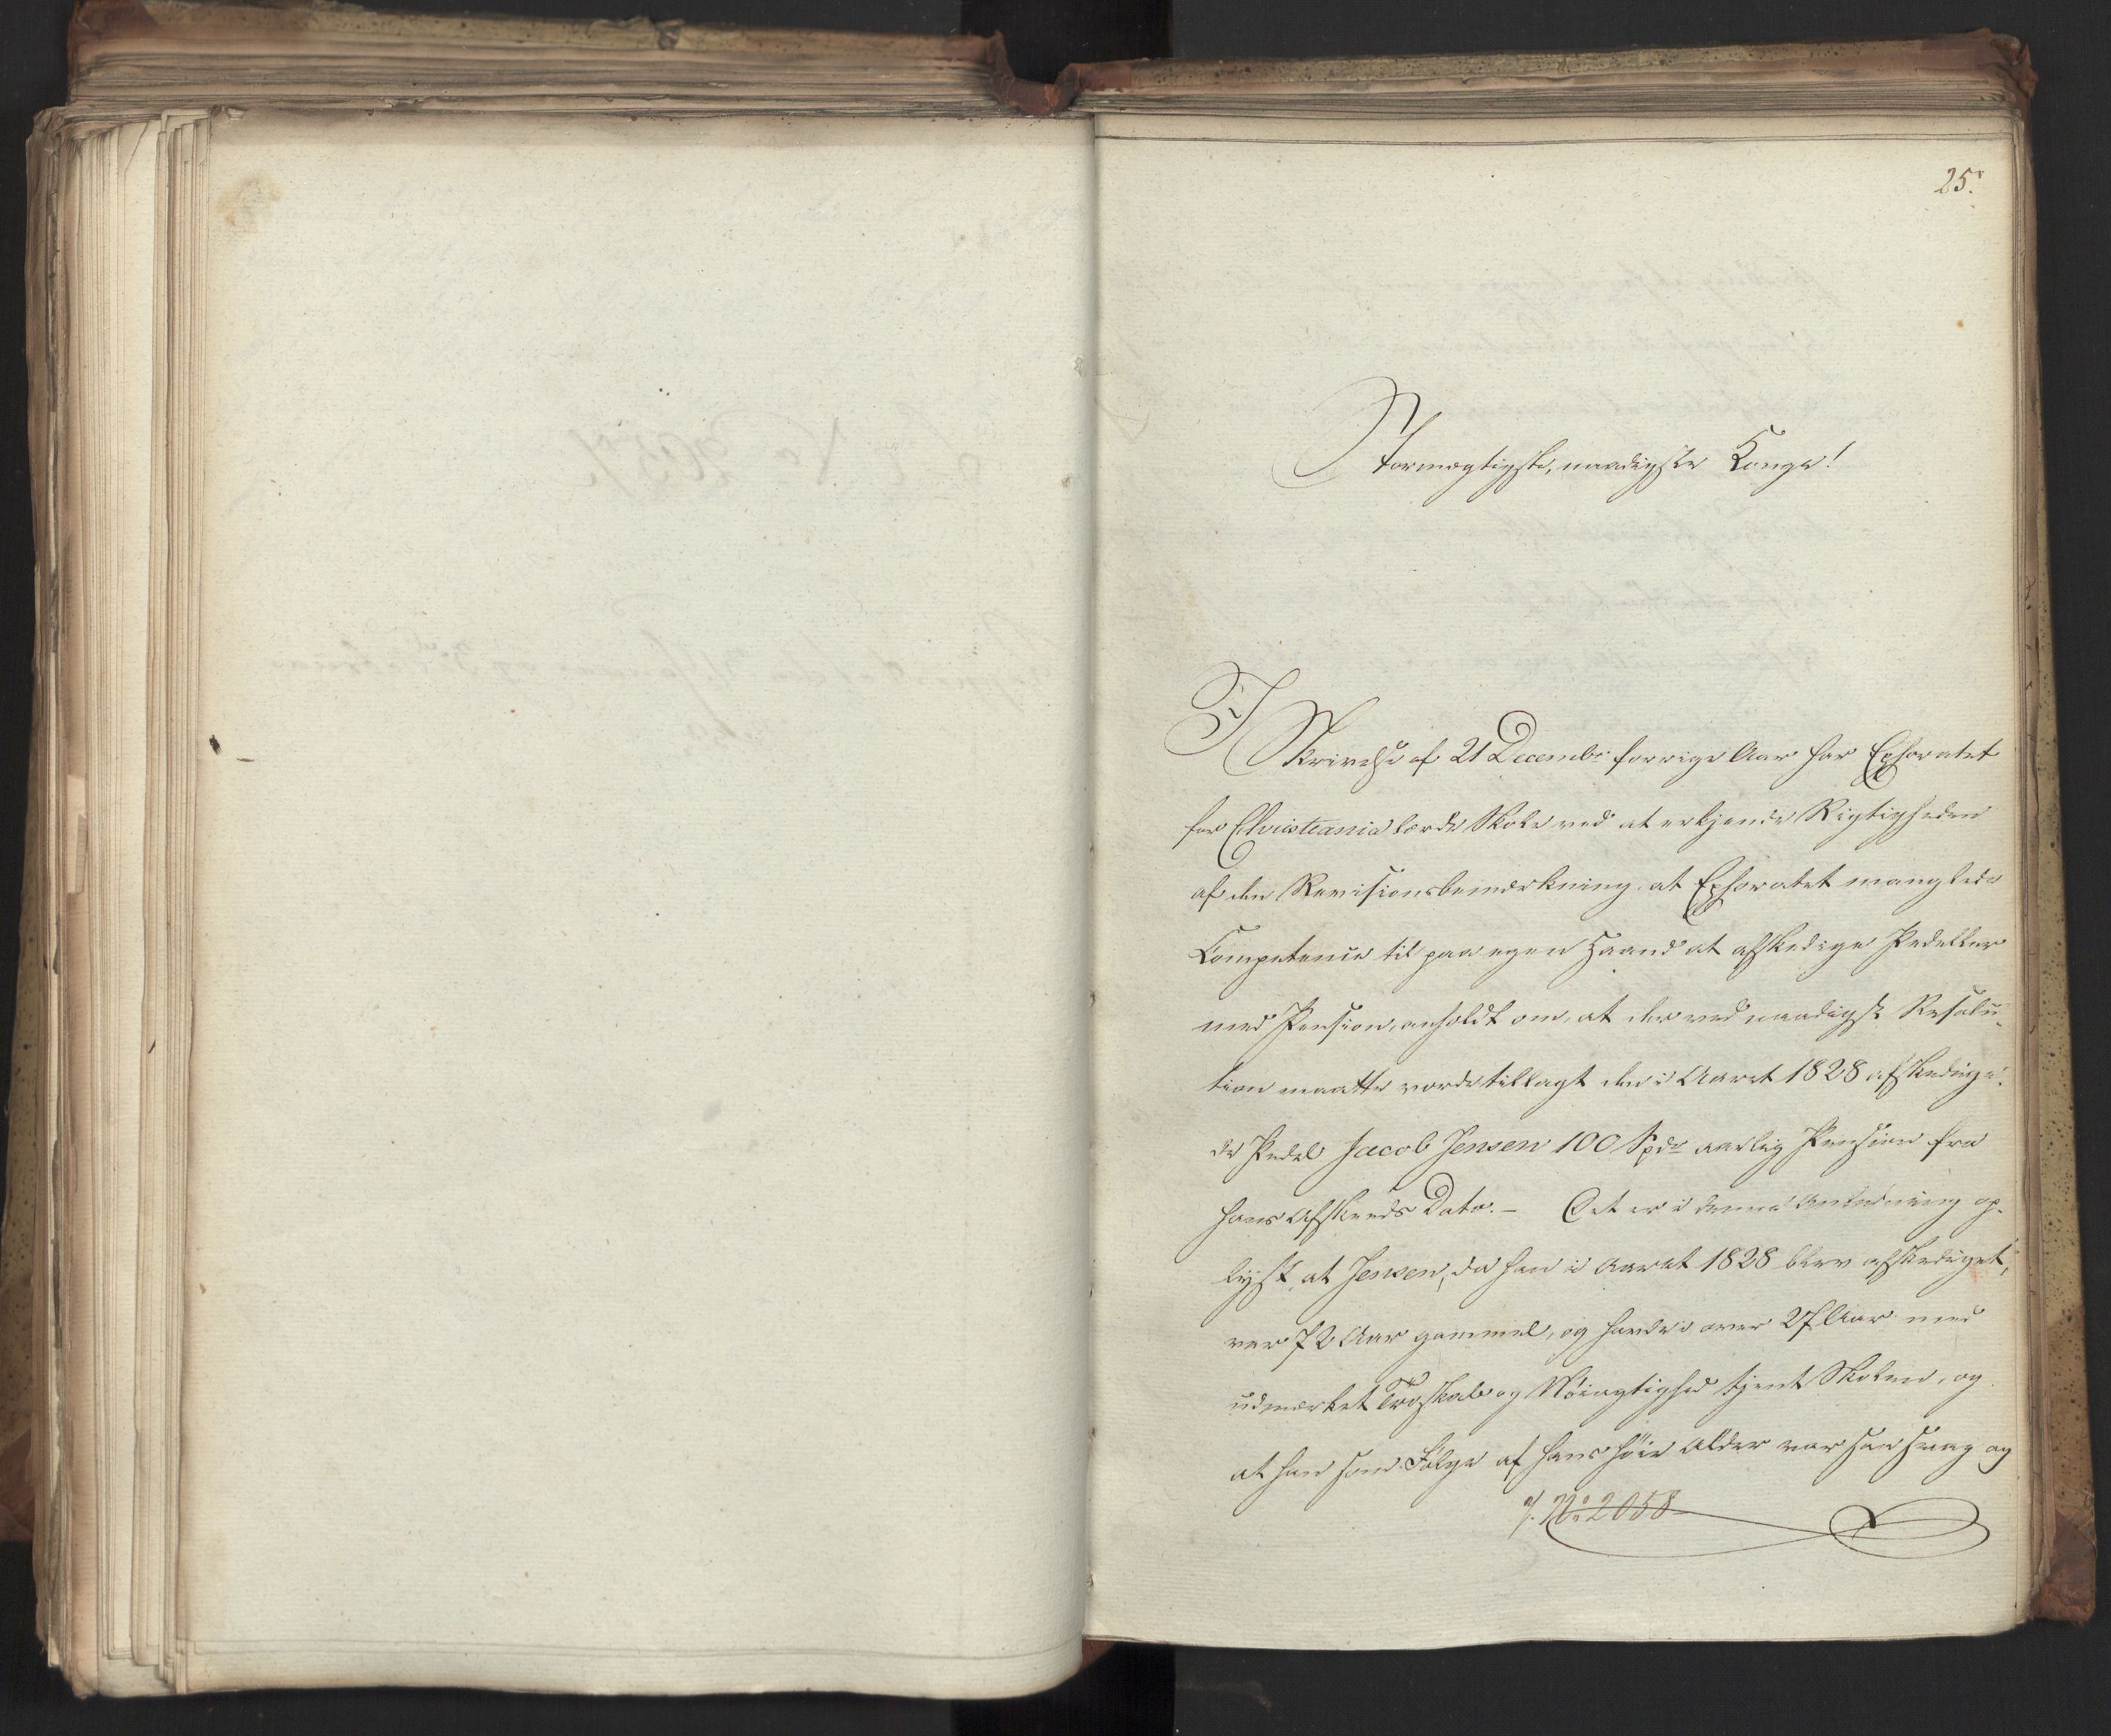 25.
Stormægtigste, naadigste Konge!
I Skrivelse af 21 Decembr forrige Aar har Ephoratet
for Christiania lærde Skole ved at erkjende Rigtigheden
af den Revisionsbemærkning, at Ephoratet manglede
Competence til paa egen Haand at afskedige Pedeller
med Pension, anholdt om, at der ved naadigst Resolu-
tion maatte vorde tillagt den i Aaret 1828 afskedige-
de Pedel Jacob Jensen 100 Spdr aarlig Pension fra
hans Afskeeds Dato. – Det er i denne Anledning op-
lyst, at Jensen, da han i Aaret 1828 blev afskediget,
var 72 Aar gammel, og havde i over 27 Aar med
udmærket Troskab og Nöiagtighed tjent Skolen, og
at han som Fölge af hans höie Alder var saa svag og
N° 2058